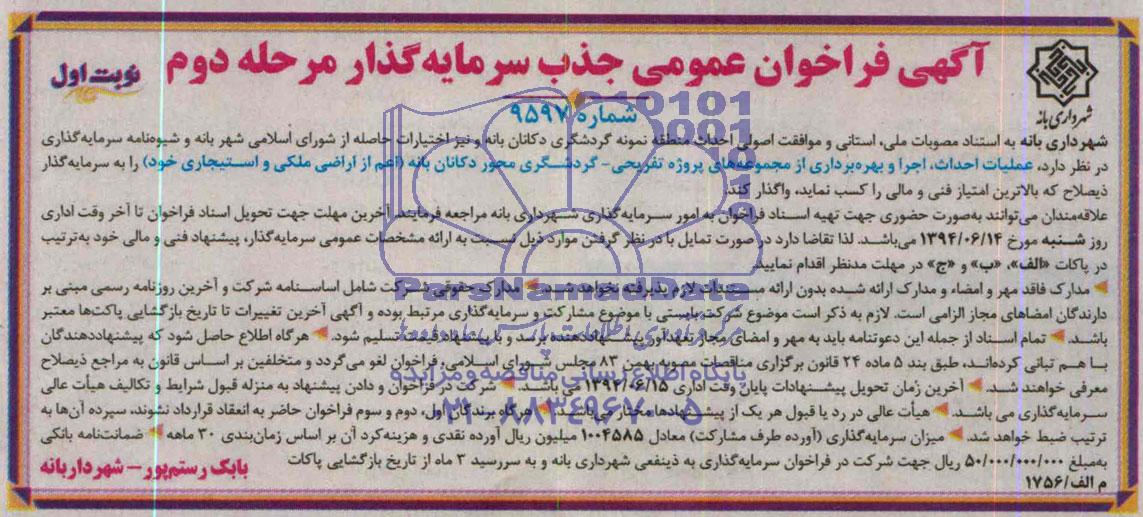 آگهی فراخوان عمومی جذب سرمایه‌گذار مرحله دوم
نوبت اول
شهرداری بانه
شماره ۹۵۹۷
شهرداری بانه به استناد مصوبات ملی، استانی و موافقت اصولی احداث منطقه نمونه گردشگری دکانان بانه و نیز اختیارات حاصله از شورای اسلامی شهر بانه و شیوه‌نامه سرمایه‌گذاری
در نظر دارد، عملیات احداث، اجرا و بهره‌برداری از مجموعه‌های پروژه تفریحی- گردشگری محور دکانان بانه (اعم از اراضی ملکی و استیجاری خود) را به سرمایه‌گذار
ذیصلاح که بالاترین امتیاز فنی و مالی را کسب نماید، واگذار کند.
علاقه‌مندان می‌توانند به‌صورت حضوری جهت تهیه اسناد فراخوان به امور سرمایه‌گذاری شهرداری بانه مراجعه فرمایند. آخرین مهلت جهت تحویل اسناد فراخوان تا آخر وقت اداری
روز شنبه مورخ ۱۳۹۴/۰۶/۱۴ می‌باشد. لذا تقاضا دارد در صورت تمایل با در نظر گرفتن موارد ذیل نسبت به ارائه مشخصات عمومی سرمایه‌گذار، پیشنهاد فنی و مالی خود به‌ترتیب
در پاکات «الف»، «ب» و «ج» در مهلت مدنظر اقدام نمایید.
مدارک فاقد مهر و امضاء و مدارک ارائه شده بدون ارائه مستندات لازم پذیرفته نخواهد شد. مدارک حقوقی شرکت شامل اساسنامه شرکت و آخرین روزنامه رسمی مبنی بر
دارندگان امضاهای مجاز الزامی است. لازم به ذکر است موضوع شرکت بایستی با موضوع مشارکت و سرمایه‌گذاری مرتبط بوده و آگهی آخرین تغییرات تا تاریخ بازگشایی پاکت‌ها معتبر
باشد. تمام اسناد از جمله این دعوتنامه باید به مهر و امضای مجاز تعهدآور پیشنهاددهنده برسد و با پیشنهاد قیمت تسلیم شود. هرگاه اطلاع حاصل شود که پیشنهاددهندگان
با هم تبانی کرده‌اند، طبق بند ۵ ماده ۲۴ قانون برگزاری مناقصات مصوبه بهمن ۸۳ مجلس شورای اسلامی، فراخوان لغو می‌گردد و متخلفین بر اساس قانون به مراجع ذیصلاح
معرفی خواهند شد. آخرین زمان تحویل پیشنهادات پایان وقت اداری ۱۳۹۴/۰۶/۱۵ می‌باشد. شرکت در فراخوان و دادن پیشنهاد به منزله قبول شرایط و تکالیف هیأت عالی
سرمایه‌گذاری می باشد. هیأت عالی در رد یا قبول هر یک از پیشنهادها مختار می‌باشد. هرگاه برندگان اول، دوم و سوم فراخوان حاضر به انعقاد قرارداد نشوند، سپرده آن‌ها به
ترتیب ضبط خواهد شد. میزان سرمایه‌گذاری (آورده طرف مشارکت) معادل ۱۰۰۴۵۸۵ میلیون ریال آورده نقدی و هزینه‌کرد آن بر اساس زمان‌بندی ۳۰ ماهه ضمانت‌نامه بانکی
به‌مبلغ ۵۰/۰۰۰/۰۰۰/۰۰۰ ریال جهت شرکت در فراخوان سرمایه‌گذاری به ذینفعی شهرداری بانه و به سررسید ۳ ماه از تاریخ بازگشایی پاکات
م الف/۱۷۵۶
بابک رستم‌پور – شهردار بانه
ParsNamadData
پایگاه اطلاع رسانی مناقصه و مزایده
۰۲۱-۸۸۳۴۹۶۷۰-۵